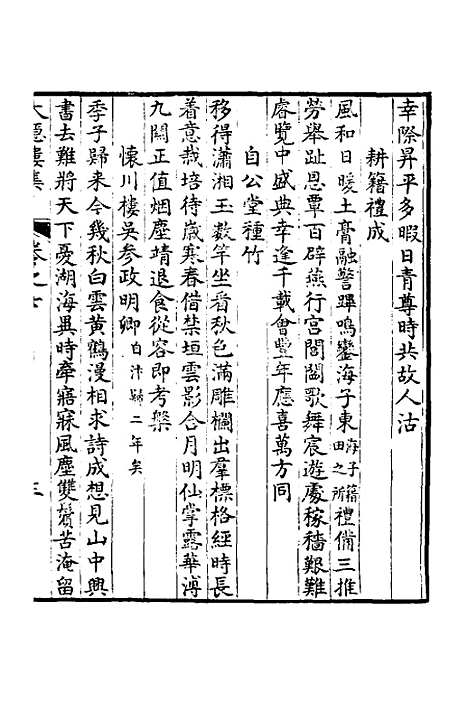 幸際昇平多暇日青尊時共故人沽
耕籍禮成
風和日暖土膏融警蹕鳴鑾海子東海子籍田之所禮備三推
勞舉趾恩覃百辟燕行宮閭閻歌舞宸遊處稼穡艱難
睿覽中盛典幸逢千載會豐年應喜萬方同
自公堂種竹
移得瀟湘玉數竿坐看秋色滿雕欄出羣標格經時長
着意栽培待歲寒春借禁垣雲影合月明仙掌露華漙
九關正值烟塵靖退食從容即考槃
懷川樓吳參政明卿自汴歸二年矣
季子歸來今幾秋白雲黃鶴漫相求詩成想見山中興
書去難將天下憂湖海異時牽寤寐風塵雙鬢苦淹留
樓集
卷之
三